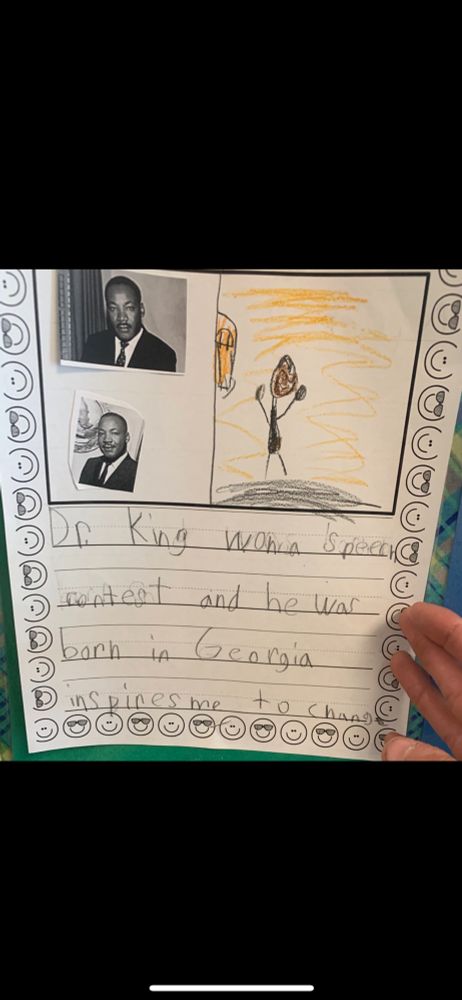 Dr. King won a speech
contest and he was
born in Georgia
inspires me to change